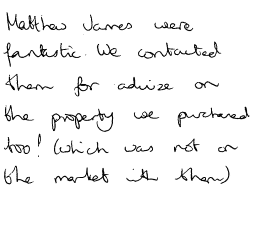 Matthew James were
fantastic. We contacted
them for advize on
the property we purchased
too! (which was not on
the market with them)